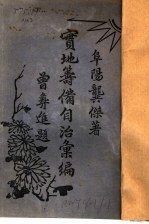 阜陽龔傑著
實地籌備自治彙編
曾彝進題